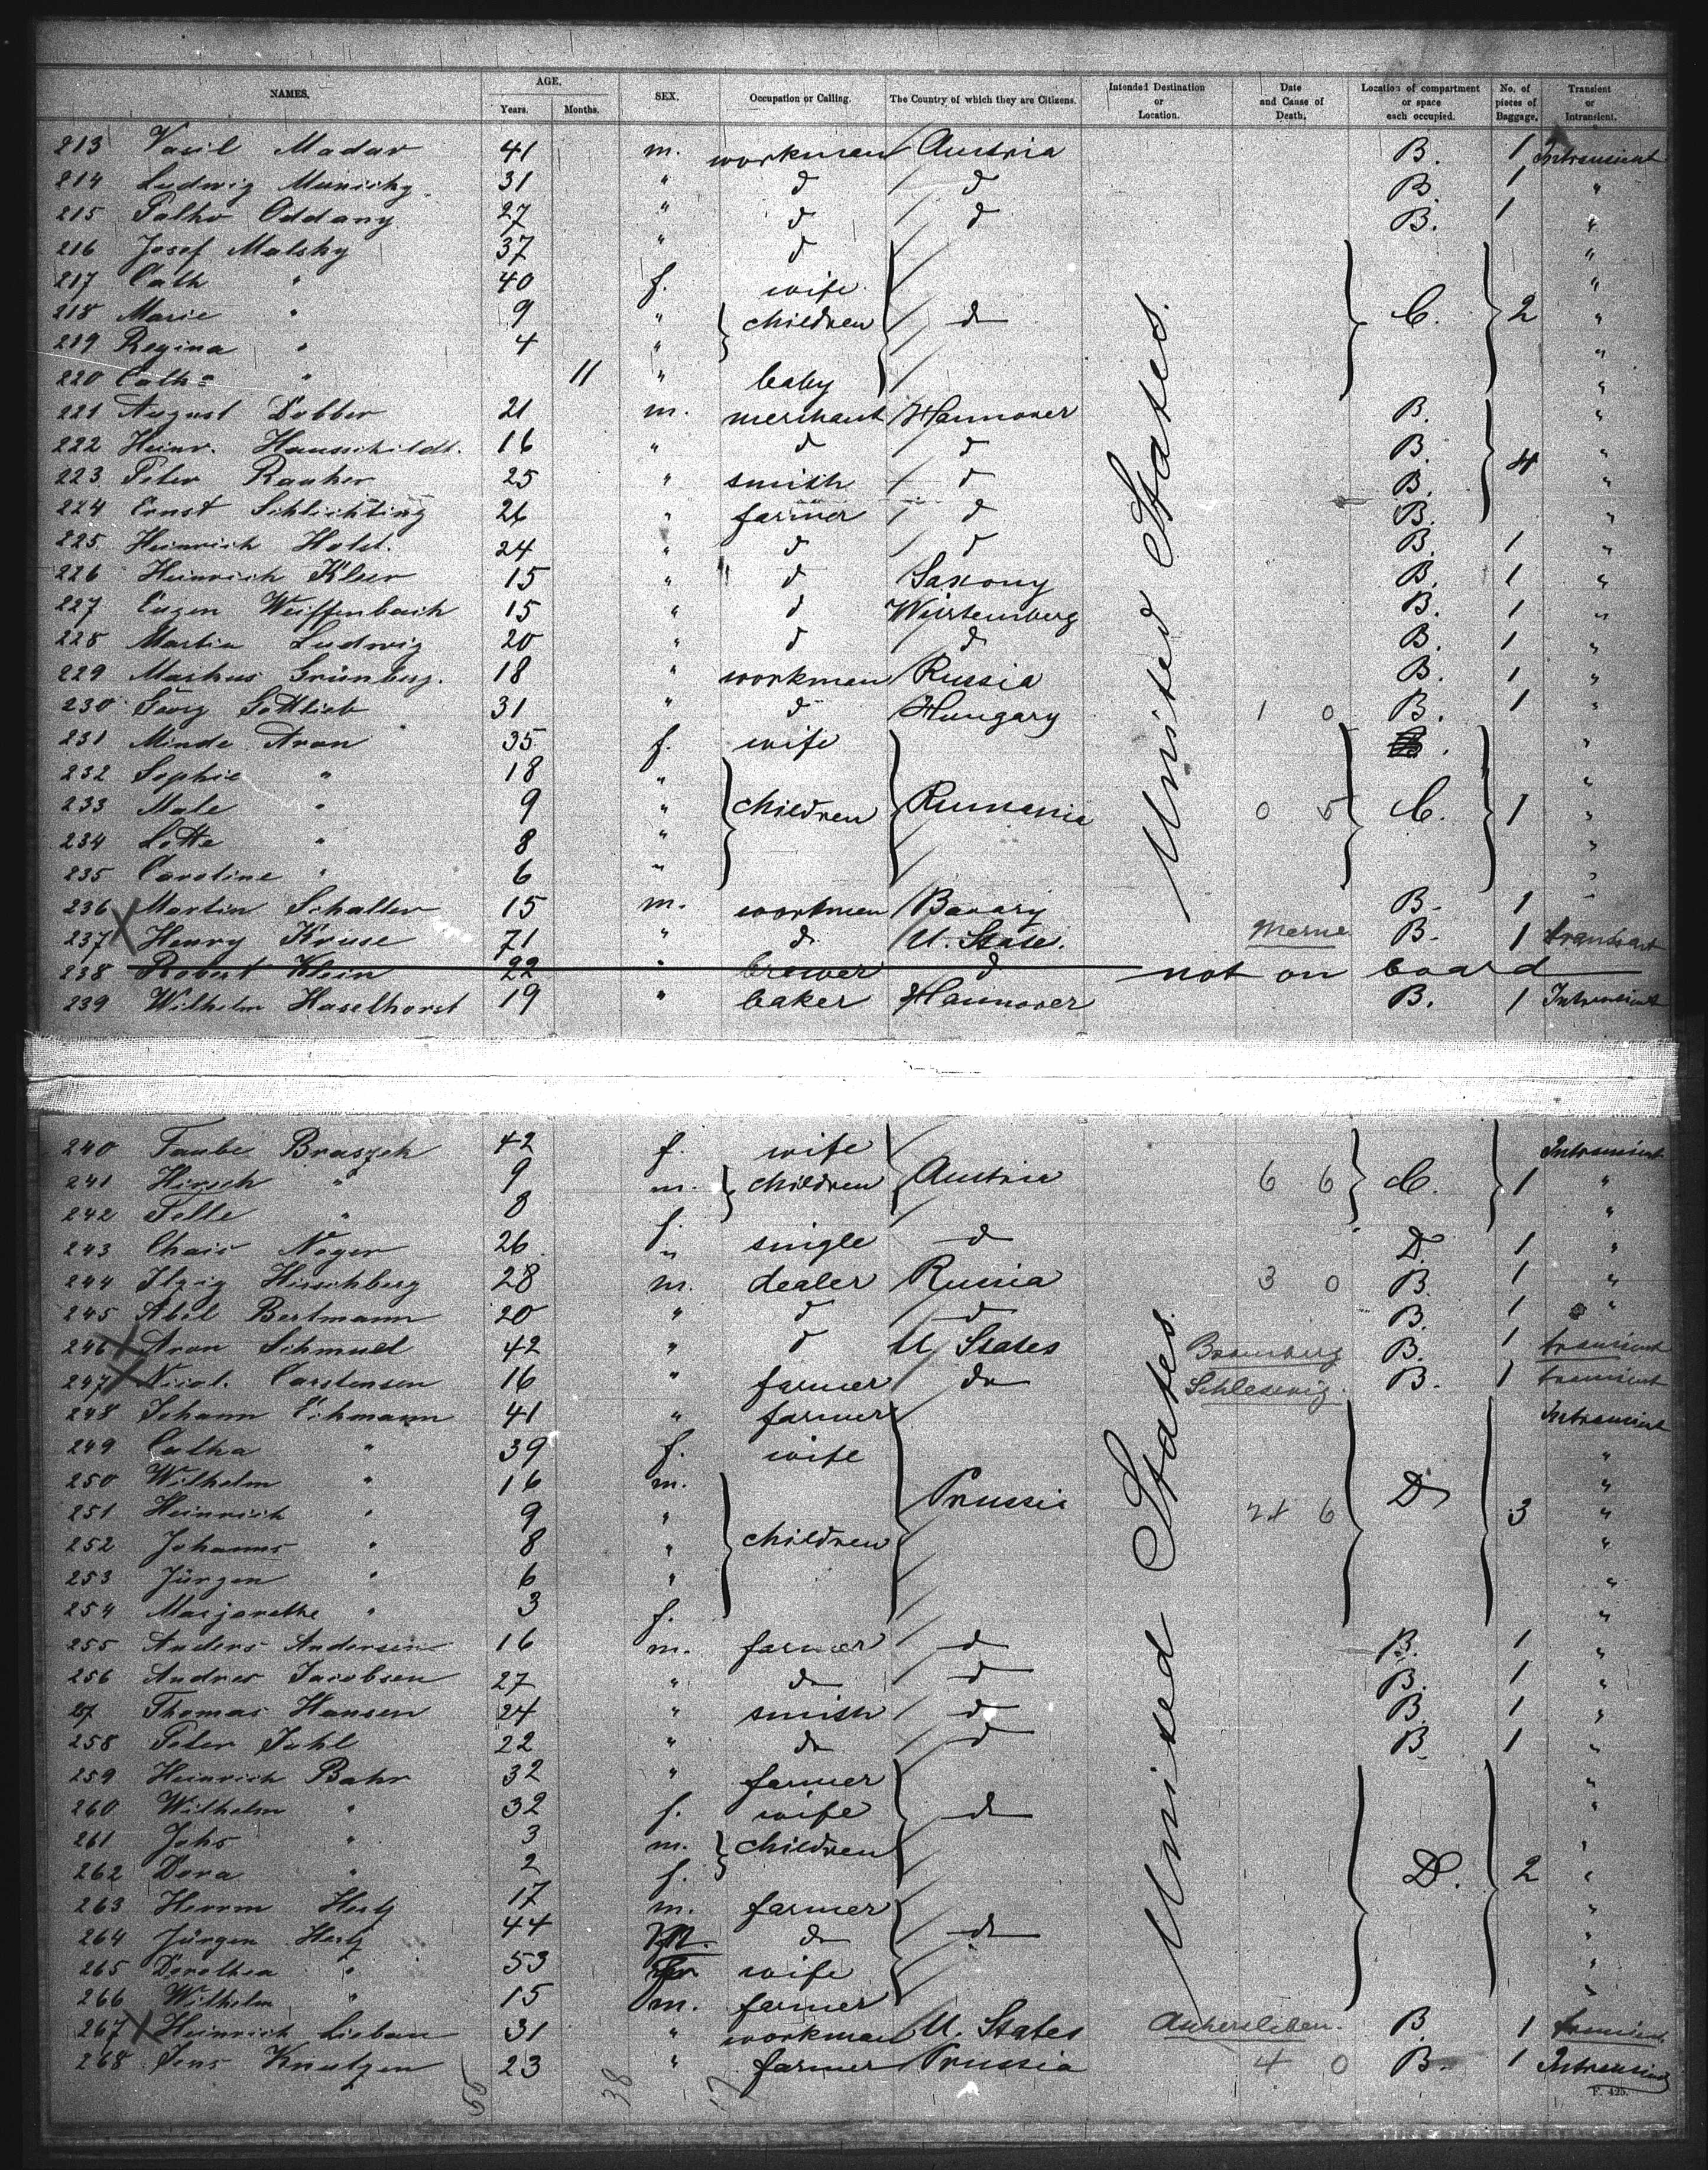 NAMES. AGE. Years. Months. SEX. Occupation or Calling. The Country of which they are Citizens. Intended Destination or Location. Date and Cause of Death. Location of compartment or space each occupied. No. of pieces of Baggage. Transient or Intransient.
213 Vasil Madar 41 m. workman Austria B. 1 Intransient
214 Ludwig 31 " d d B. 1 "
215 Palko Oddany 27 " d d B. 1 "
216 Josef Malsky 37 " d "
217 Cath " 40 f. wife "
218 Marie " 9 " children d C. 2 "
219 Regina " 4 " "
220 Cath " 11 " baby "
221 August Dobber 21 m. merchant Hannover B. "
222 Heinr. Hausschildt. 16 " d d B. 4 "
223 Peter Rauher 25 " smith d B. "
224 Ernst Schlichting 26 " farmer d B. "
225 Heinrich Holst. 24 " d d B. 1 "
226 Heinrich Kleer 15 " d Saxony B. 1 "
227 Eugen Weiffenbach 15 " d Würtemberg B. 1 "
228 Martin Ludwig 20 " d d B. 1 "
229 Markus Grünberg. 18 " workman Russia B. 1 "
230 Georg Gottlieb 31 " d Hungary 1 0 B. 1 "
231 Minde Aron 35 f. wife "
232 Sophie " 18 " "
233 Male " 9 " children Rumania 0 5 C. 1 "
234 Lotte " 8 " "
235 Caroline " 6 " "
236 Martin Schaller 15 m. workman Bavary B. 1
237 X Henry Kruse 71 " d U. State. Marne B. 1 transient
238 Robert Klein 22 " brewer d not on board
239 Wilhelm Haselhorst 19 " baker Hannover B. 1 Intransient
United States.
240 Taube Braszek 42 f. wife Intransient
241 Hirsch " 9 m. children Austria 6 6 C. 1 "
242 Telle " 8 f. "
243 Chais Neger 26 " single d D. 1 "
244 Itzig Hirschberg 28 m. dealer Russia 3 0 B. 1 "
245 Abel Bertmann 20 " d d B. 1 "
246 X Aron Schmuel 42 " d U States B. 1 transient
247 X Nicol. Carstensen 16 " farmer do Schleswig. B. 1 transient
248 Johann Eihmann 41 " farmer Intransient
249 Catha " 39 f. wife "
250 Wilhelm " 16 m. "
251 Heinrich " 9 " Prussia 24 6 D 3 "
252 Johanns " 8 " children "
253 Jürgen " 6 " "
254 Marjarethe " 3 f. "
255 Anders Andersen 16 m. farmer d B. 1 "
256 Andres Jacobsen 27 " do d B. 1 "
257 Thomas Hansen 24 " smith d B. 1 "
258 Peter Juhl 22 " do d B. 1 "
259 Heinrich Bahr 32 " farmer "
260 Wilhelm " 32 f. wife d "
261 Johs " 3 m. children "
262 Dora " 2 f. D. 2 "
263 Herrm 17 m. farmer "
264 Jürgen 44 m. do d "
265 Dorothea " 53 wife "
266 Wilhelm " 15 m. farmer "
267 X Heinrich Lieban 31 " workman U. States B. 1 transient
268 Jens Knutzen 23 " farmer Prussia 4 0 B. 1 Intransient
United States.
55 38 17
F. 425.